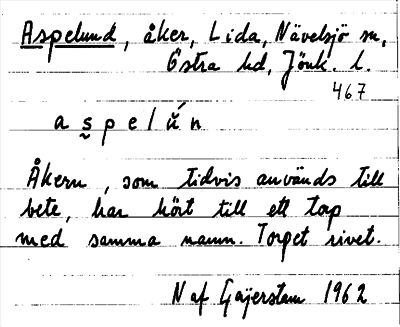 Aspelund, åker, Lida, Nävelsjö sn,
Östra hd, Jönk. l.
467
a s̰ p e l ŭ́ n
Åkern, som tidvis används till
bete, har hört till ett torp
med samma namn. Torpet rivet.
N af Gejerstam 1962